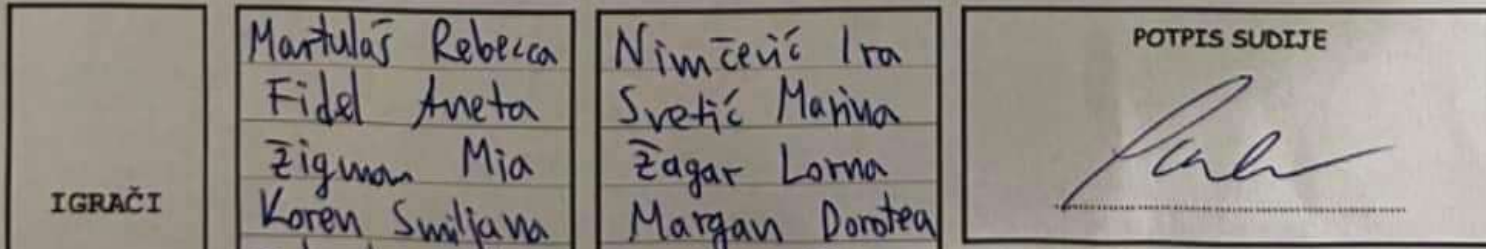 IGRAČI
Martulaš Rebecca
Fidel Aneta
Žigman Mia
Koren Smiljana
Nimčević Ira
Svetić Marina
Žagar Lorna
Margan Dorotea
POTPIS SUDIJE